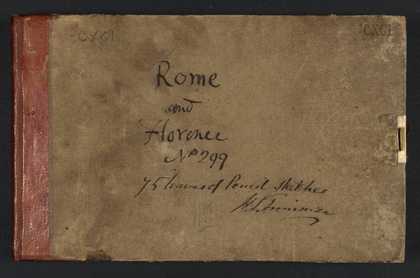 CXCI
CXCI
Rome
and
Florence
No 299
75 leaves of Pencil Sketches